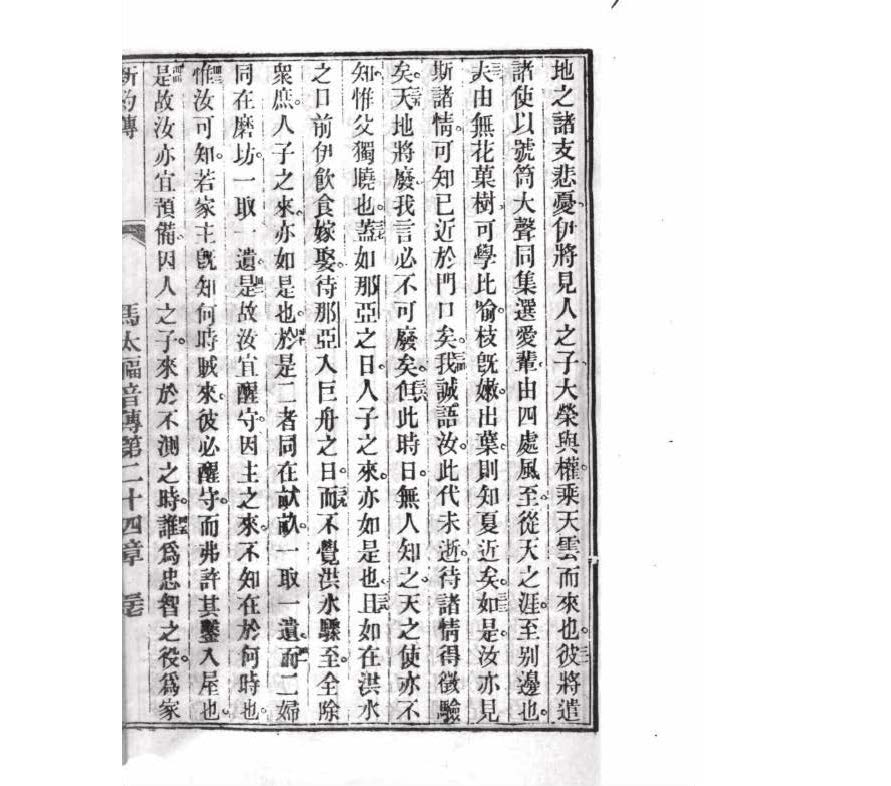 地之諸支悲憂伊將見人之子大榮與權乘天雲而來也彼將遣
諸使以號筒大聲同集選愛輩由四處風至從天之涯至别邊也
夫由無花菓樹可學比喻枝旣嫩出葉則知夏近矣如是汝亦見
斯諸情可知已近於門口矣我誠語汝此代未逝待諸情得徵驗
矣天地將廢我言必不可廢矣但此時日無人知之天之使亦不
知惟父獨曉也蓋如那亞之日人子之來亦如是也且如在洪水
之日前伊飲食嫁娶待那亞入巨舟之日而不覺洪水驟至全除
衆庶人子之來亦如是也於是二者同在畎畝一取一遺而二婦
同在磨坊一取一遺是故汝宜醒守因主之來不知在於何時也
惟汝可知若家主旣知何時賊來彼必醒守而弗許其鑿入屋也
是故汝亦宜預備因人之子來於不測之時誰爲忠智之役爲家
新約傳 馬太福音傳第二十四章